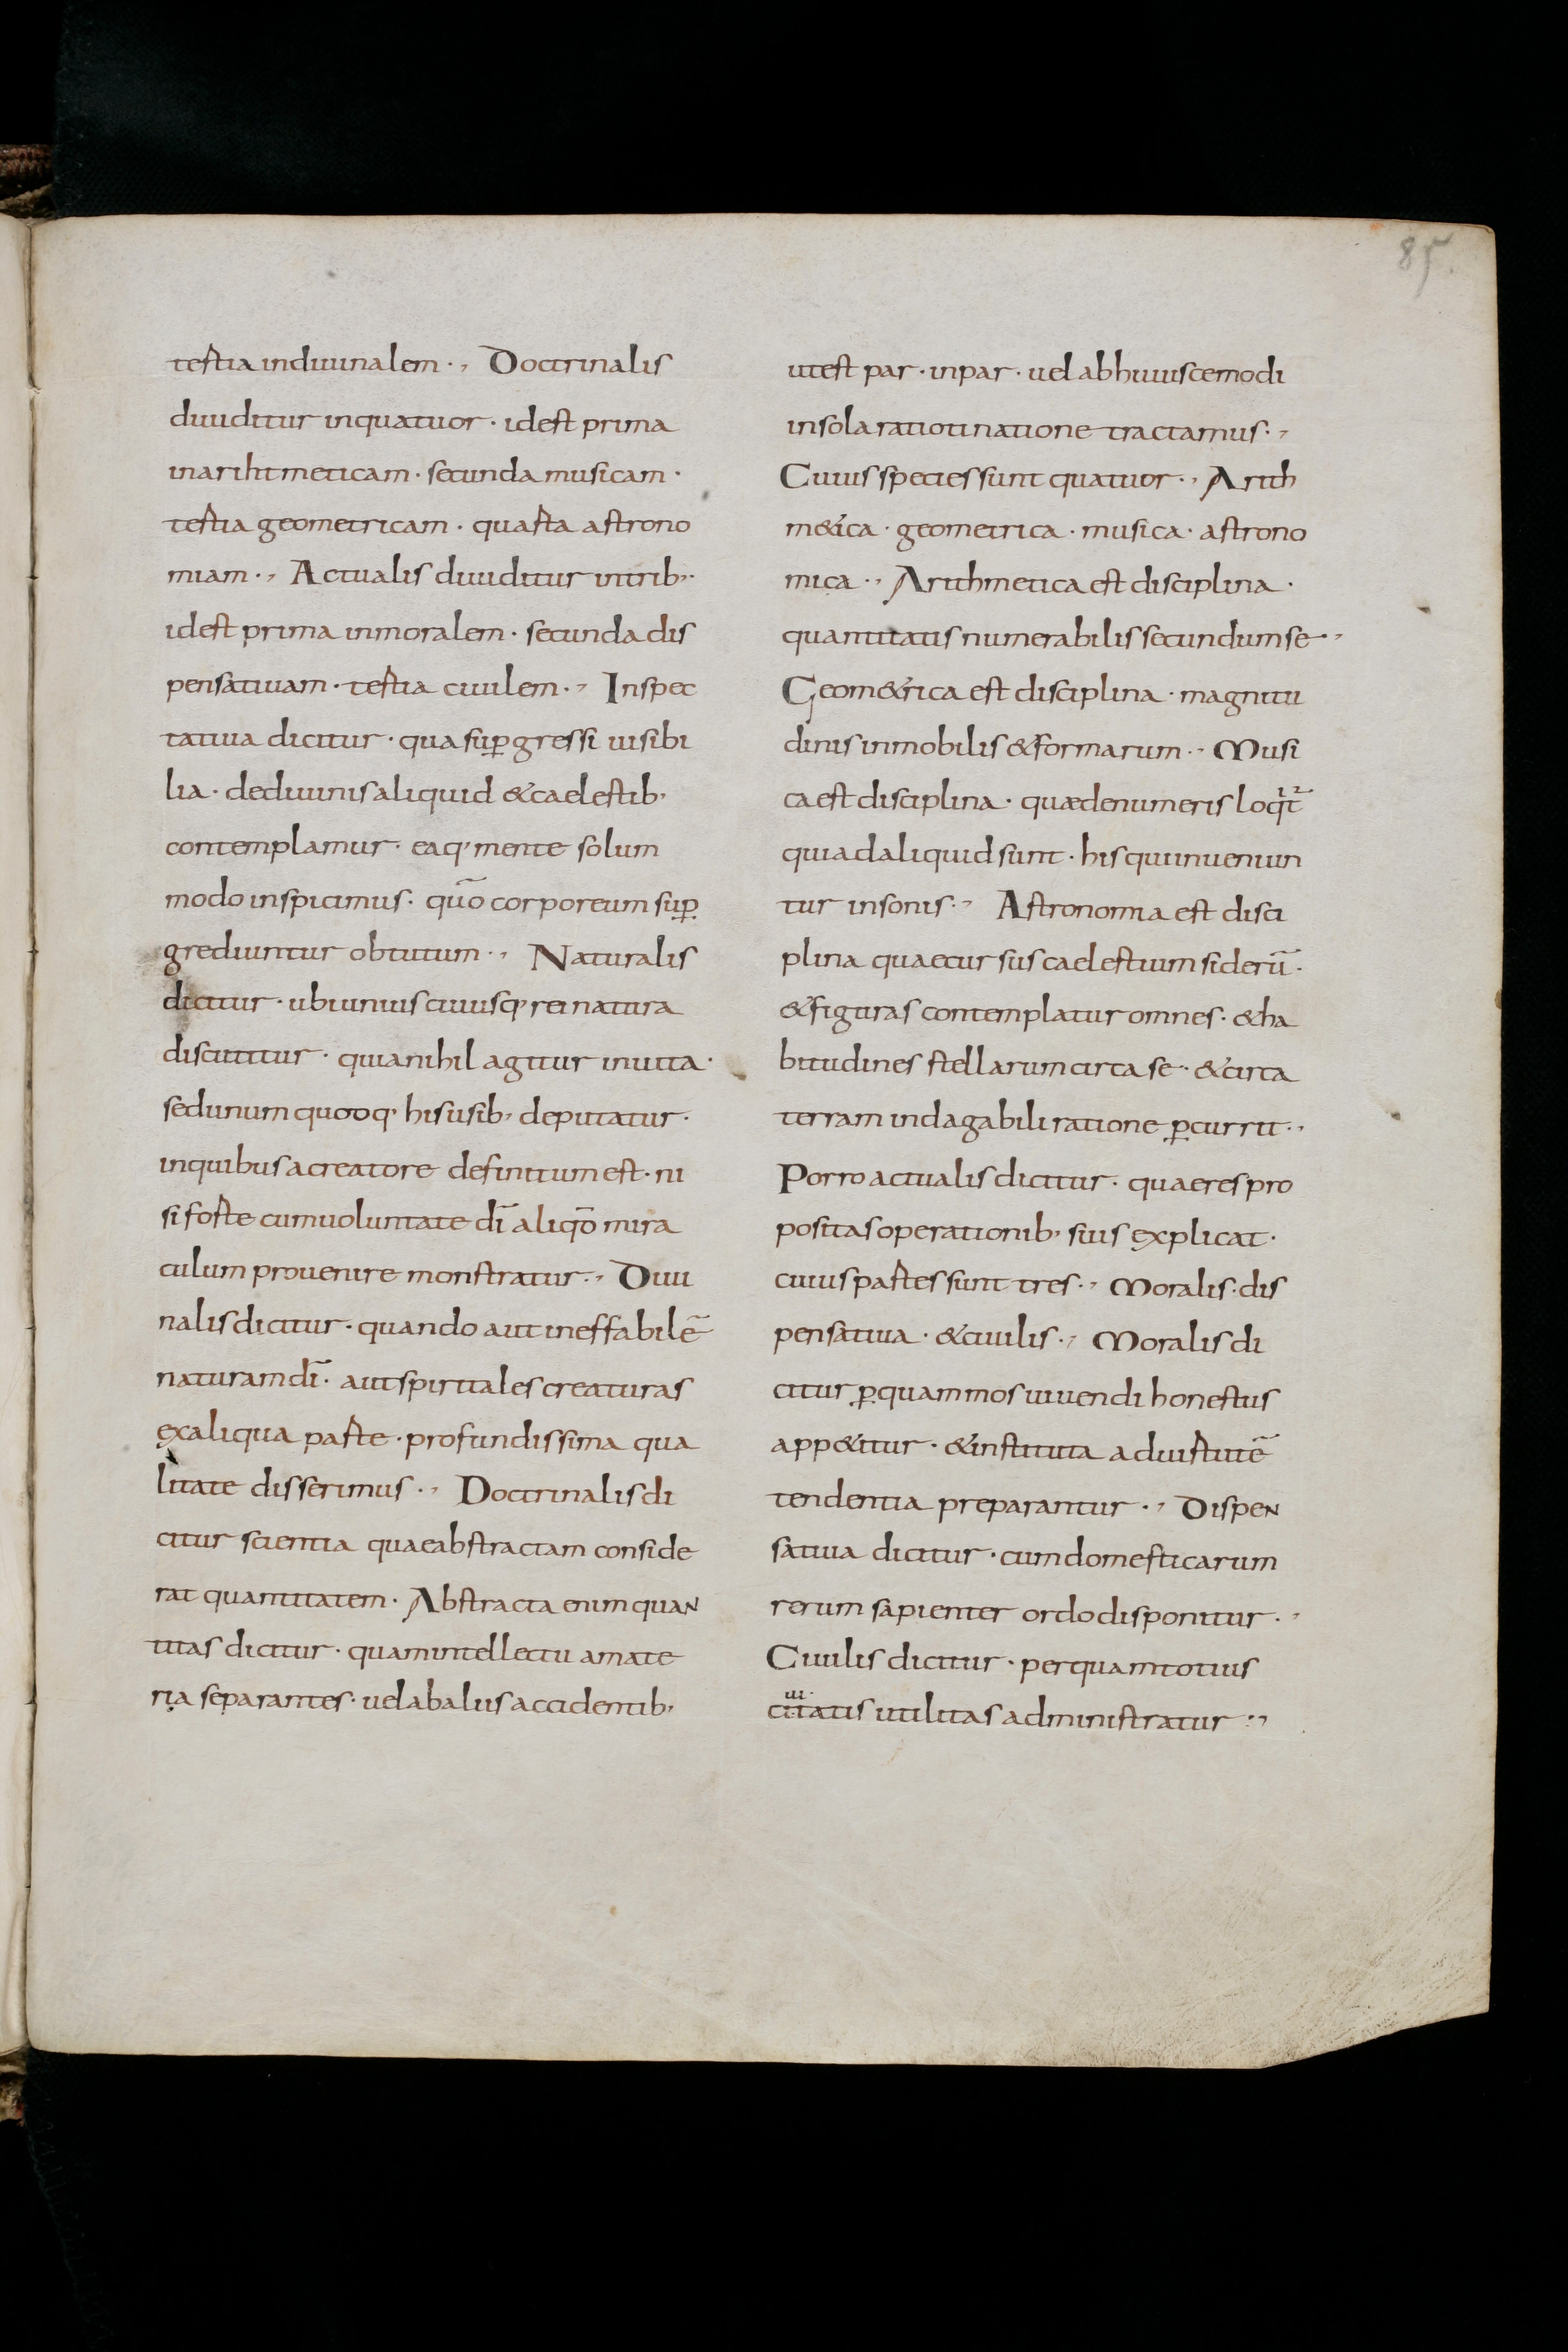 85.
tertia indiuinalem·, Doctrinalis
diuiditur inquatuor · idest prima
inarihtmeticam · secunda musicam ·
tertia geometricam · quarta astrono
miam·, Actualis diuiditur intrib,·
idest prima inmoralem · secunda dis
pensatiuam · tertia ciuilem·, Inspec
tatiua dicitur · qua sup̲gressi uisibi
lia · dediuinis aliquid &caelestib,
contemplamur · eaq, mente solum
modo inspicimus · quō corporeum sup̲
grediuntur obtutum·, Naturalis
dicitur · ubi uniuscuiusq, rei natura
discutitur · quianihil agitur inuita ·
sedunum quooq, hisusib, deputatur ·
inquibus acreatore definitum est · ni
si forte cumuoluntate dī aliqō mira
culum prouenire monstratur·, Diui
nalis dicitur · quando aut ineffabilē
naturam dī · aut spiritales creaturas
exaliqua parte · profundissima qua
litate disserimus·, Doctrinalis di
citur scientia quaeabstractam conside
rat quantitatem · Abstracta enim quan
titas dicitur · quamintellectu amate
ria separantes · uel abaliis accidentib,
utest par · inpar · uel abhuiuscemodi
insola ratiotinatione tractamus·,
Cuius species sunt quatuor·, Arith
m&ica · geometrica · musica · astrono
mica·, Arithmetica est disciplina ·
quantitatis numerabilis secundum se·,
Geom&rica est disciplina · magnitu
dinis inmobilis &formarum·, Musi
ca est disciplina · quædenumeris loqit̄
quiadaliquid sunt · his quiinueniun
tur insonis·, Astronomia est disci
plina quaecursus caelestium siderū ·
&figuras contemplatur omnes · &ha
bitudines stellarum circa se · &circa
terram indagabili ratione p̲currit·,
Porro actualis dicitur · quaeres pro
positas operationib, suis explicat ·
cuius partes sunt tres·, Moralis · dis
pensatiua · &ciuilis·, Moralis di
citur p̲quam mos uiuendi honestus
app&itur · &instituta aduirtutē
tendentia preparantur·, Dispen
satiua dicitur · cum domesticarum
rerum sapienter ordo disponitur·,
Ciuilis dicitur · perquam totius
ui
citatis utilitas administratur:,